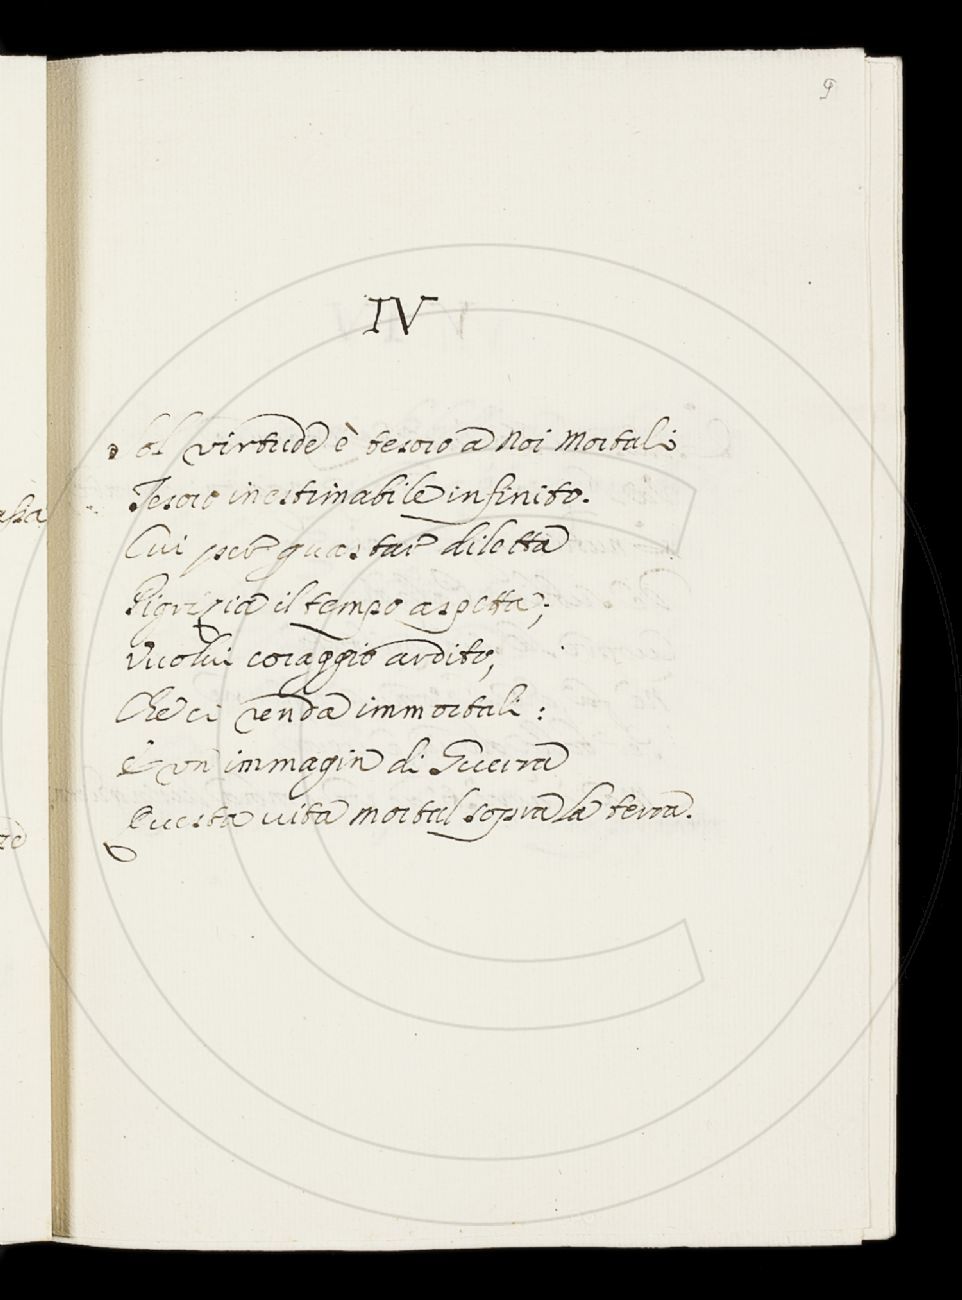 9
IV
Sol virtude è tesoro a Noi Mortali
Tesoro inestimabile infinito.
Cui per guastar diletta
Pigrizia il tempo aspetta;
Vuolui coraggio ardito,
Che ci renda immortali:
È un immagin di Guerra
Questa uita mortal sopra la terra.